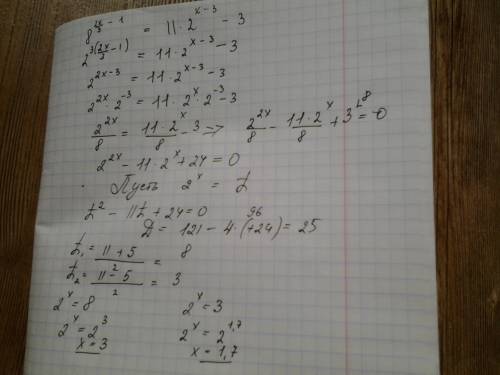 8^(2x/3 - 1) = 11·2^(x-3) - 3
2^(3(2x/3 - 1)) = 11·2^(x-3) - 3
2^(2x-3) = 11·2^(x-3) - 3
2^(2x)·2^(-3) = 11·2^x·2^(-3) - 3
2^(2x)/8 = 11·2^x/8 - 3 => 2^(2x)/8 - 11·2^x/8 + 3 = 0 8
2^(2x) - 11·2^x + 24 = 0
Пусть 2^x = t
t^2 - 11t + 24 = 0
96
D = 121 - 4·(+24) = 25
t₁ = (11+5)/2 = 8
t₂ = (11-5)/2 = 3
2^x = 8 2^x = 3
2^x = 2^3 2^x = 2^(1,7)
x = 3 x = 1,7